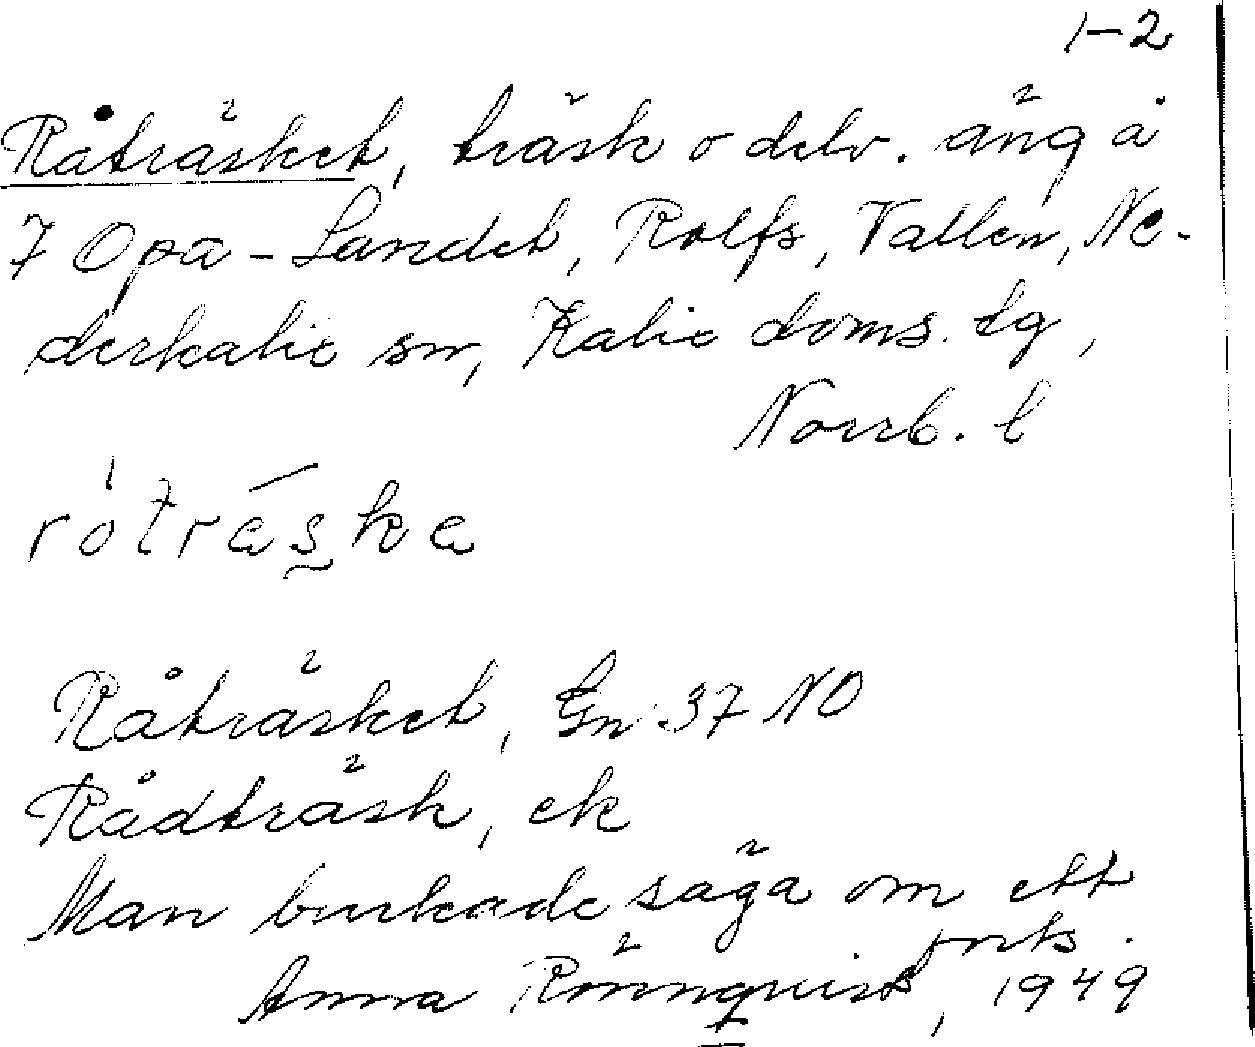 1-2
Råträsket, träsk o delv. äng å
7 Opa-Landet, Rolfs, Vallen, Ne-
derkalix sn, Kalix doms. tg,
Norrb. l
rótráska
Råträsket, Gn 37 NO
Rådträsk, ek
Man brukade säga om ett
forts.
Anna Rönnqvist, 1949